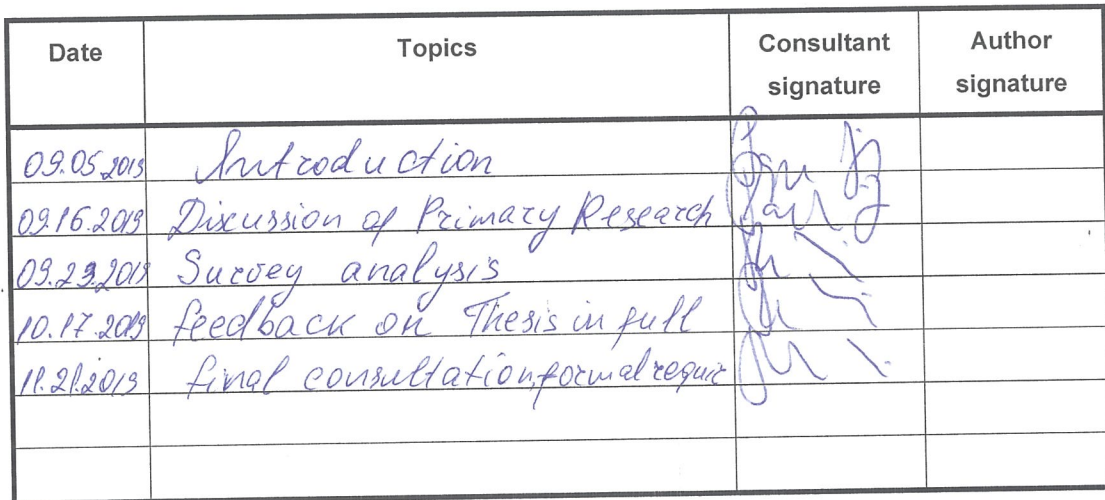 Date Topics Consultant signature Author signature
09.05.2019 Introduction
09.16.2019 Discussion of Primary Research
09.23.2019 Survey analysis
10.17.2019 feedback on Thesis in full
11.21.2019 final consultation, formal requir